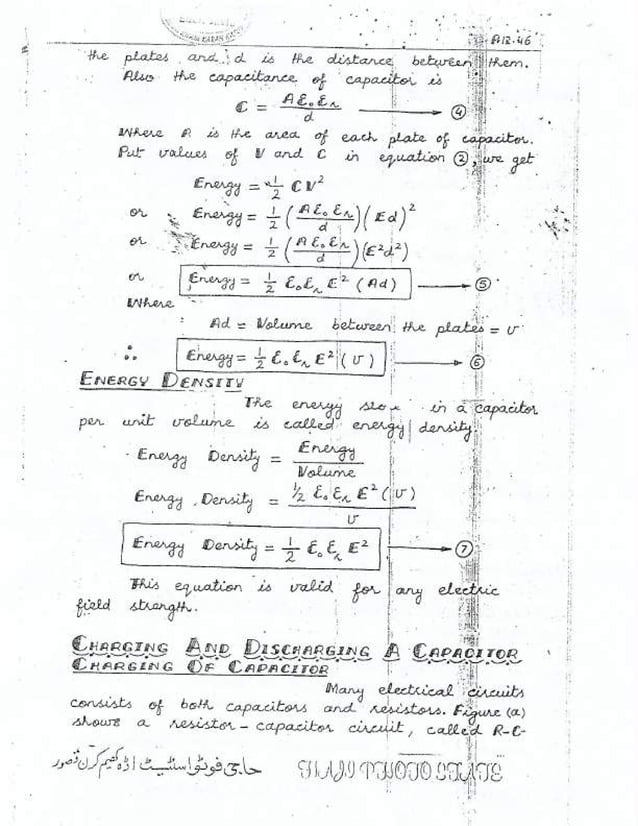 A12.46
the plates and d is the distance between them.
Also the capacitance of capacitor is
C = Aε₀εᵣ/d ④
Where A is the area of each plate of capacitor.
Put values of V and C in equation ②, we get
Energy = ½ CV²
or Energy = ½ (Aε₀εᵣ/d)(Ed)²
or Energy = ½ (Aε₀εᵣ/d)(E²d²)
or Energy = ½ ε₀εᵣE² (Ad) ⑤
Where
Ad = Volume between the plates = v
∴ Energy = ½ ε₀εᵣE² (v) ⑥
ENERGY DENSITY
The energy in a capacitor
per unit volume is called energy density
Energy Density = Energy/Volume
Energy Density = ½ ε₀εᵣE² (v)/v
Energy Density = ½ ε₀εᵣE² ⑦
This equation is valid for any electric
field strength.
CHARGING AND DISCHARGING A CAPACITOR
CHARGING OF CAPACITOR
Many electrical circuits
consists of both capacitors and resistors. Figure (a)
shows a resistor-capacitor circuit, called R-C-
حاجی فوٹو اسٹیٹ اڈہ کھیم کرن قصور HAJI PHOTO STATE